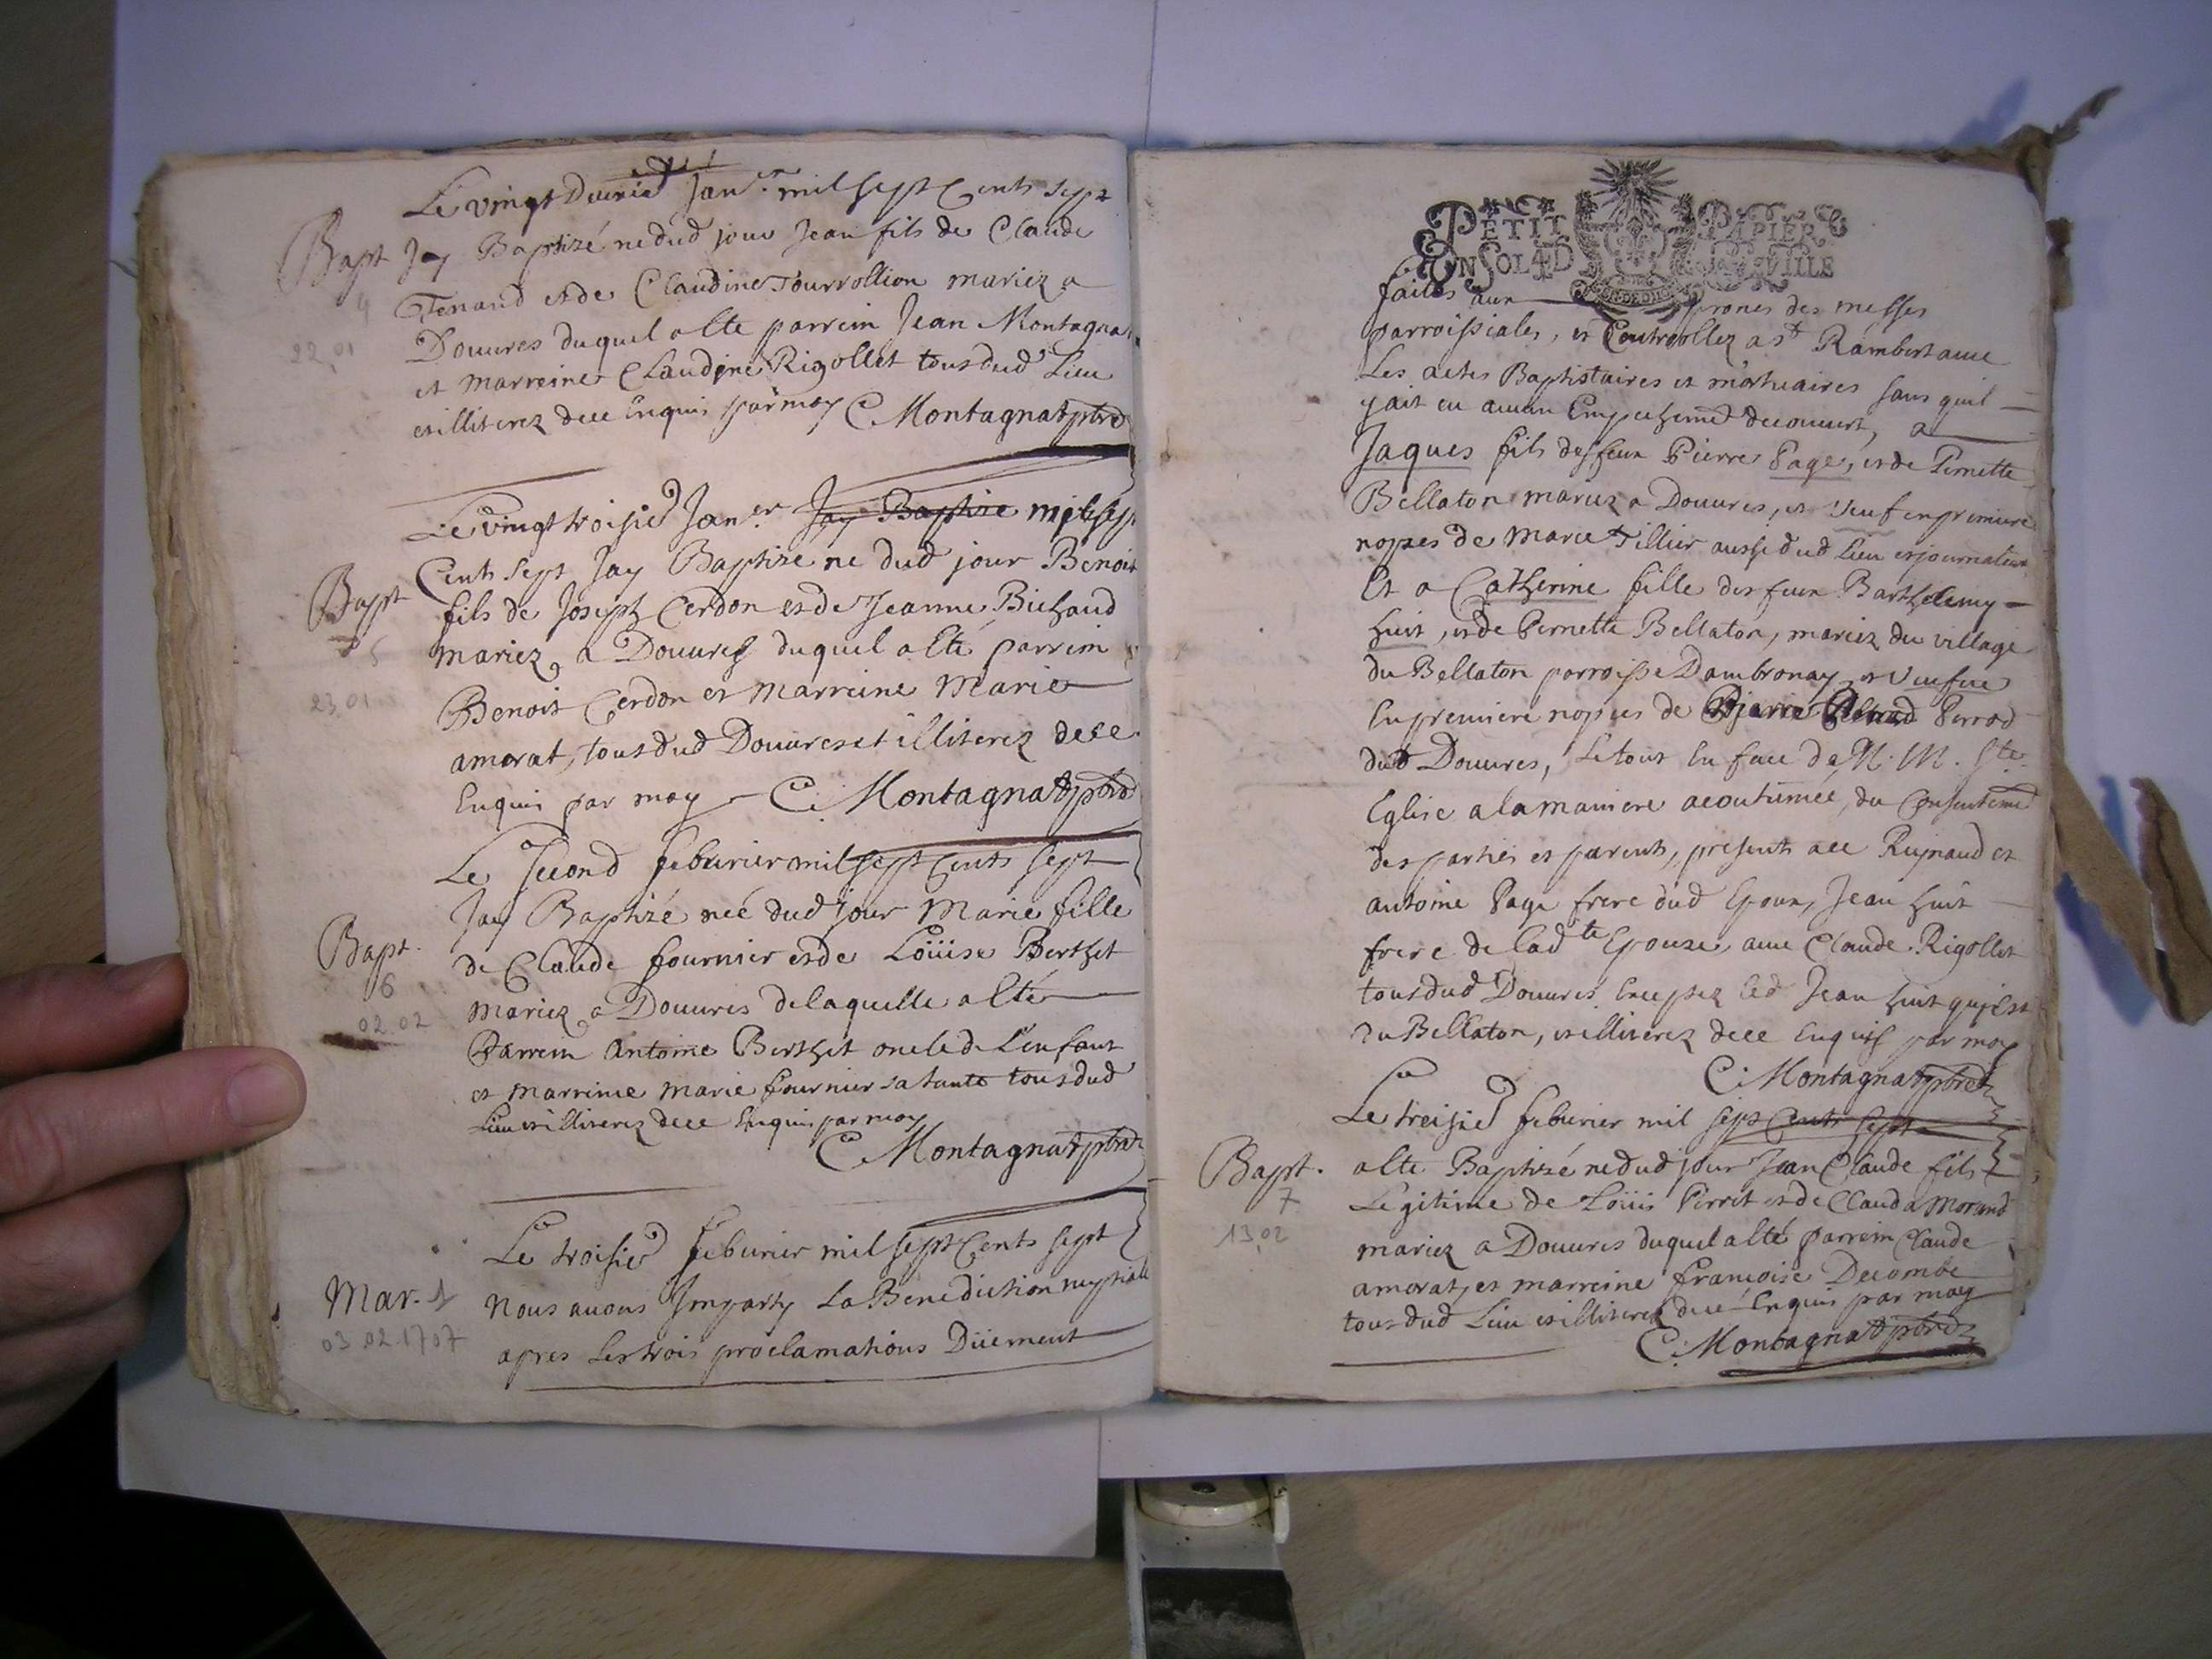 Le vingt Deuxie Jan.er mil sept Cents sept
Bapt Jay Baptizé ne dud jour Jean fils de Claude
4 Tenand et de Claudine Tourrollion mariez a
22.01 Douures duquel a esté parrein Jean Montagnat
et marreine Claudine Rigollet tous dud Lieu
et illiterez de ce Enquis par moy C Montagnat ptre
Le vingt troisie Jan.er Jay Baptize mil sept
Cents sept Jay Baptize ne dud jour Benoit
Bapt fils de Joseph Cerdon et de Jeanne Bichaud
5 mariez a Douures duquel a esté parrein
23.01 Benoit Cerdon et Marreine Marie
amorat, tous dud Douures et illiterez de ce
Enquis par moy C. Montagnat ptre
Le Second feburier mil sept Cents sept
Jay Baptizé neé dud jour Marie fille
Bapt. de Claude fournier et de Loüise Berthet
6 mariez a Douures de laquelle a esté
02.02 Parrein Antoine Berthet oncle de L'enfant
et marreine marie fournier sa tante tous dud
Lieu et illiterez de ce Enquis par moy
C Montagnat ptre
Le troisie feburier mil sept Cents sept
Mar. 1 Nous auons Imparty La Benediction nuptiale
03.02.1707 apres Les trois proclamations Düement
PETIT PAPIER
UN SOL 4 D LA FEUILLE
faites aux prones des messes
parroissiales, et Controollez a St Rambert auec
Les actes Baptistaires et mortuaires sans quil
y ait eu aucun Empechemt decouuert, a
Jaques fils de feu Pierre Page, et de Pernette
Bellaton mariez a Douures, et veuf en premiere
nopces de Marie Tillier aussi dud Lieu et journalier
Et a Catherine fille de feu Barthelemy
huit, et de Pernette Bellaton, mariez du village
du Bellaton parroisse Dambronay, et veufue
En premiere nopces de Perrod
dud Douures, Le tout En face de N. M. Ste
Eglise a la maniere acoutumeé, du Consentemt
des parties et parents, presents a ce Reynaud et
antoine Page frere dud Epoux, Jean huit
frere de Ladte Epouse, auec Claude Rigollet
tous dud Douures Exceptez Led Jean huit qui est
du Bellaton, et illiterez de ce Enquis par moy
C. Montagnat ptre
Le treisie feburier mil sept Cents sept
Bapt. a esté Baptizé ne dud jour Jean Claude fils
7 Legitime de Loüis Perret et de Clauda Morand
13.02 mariez a Douures duquel a esté parrein Claude
amorat, et marreine françoise Decombe
tous dud Lieu et illiterez de ce Enquis par moy
C. Montagnat ptre